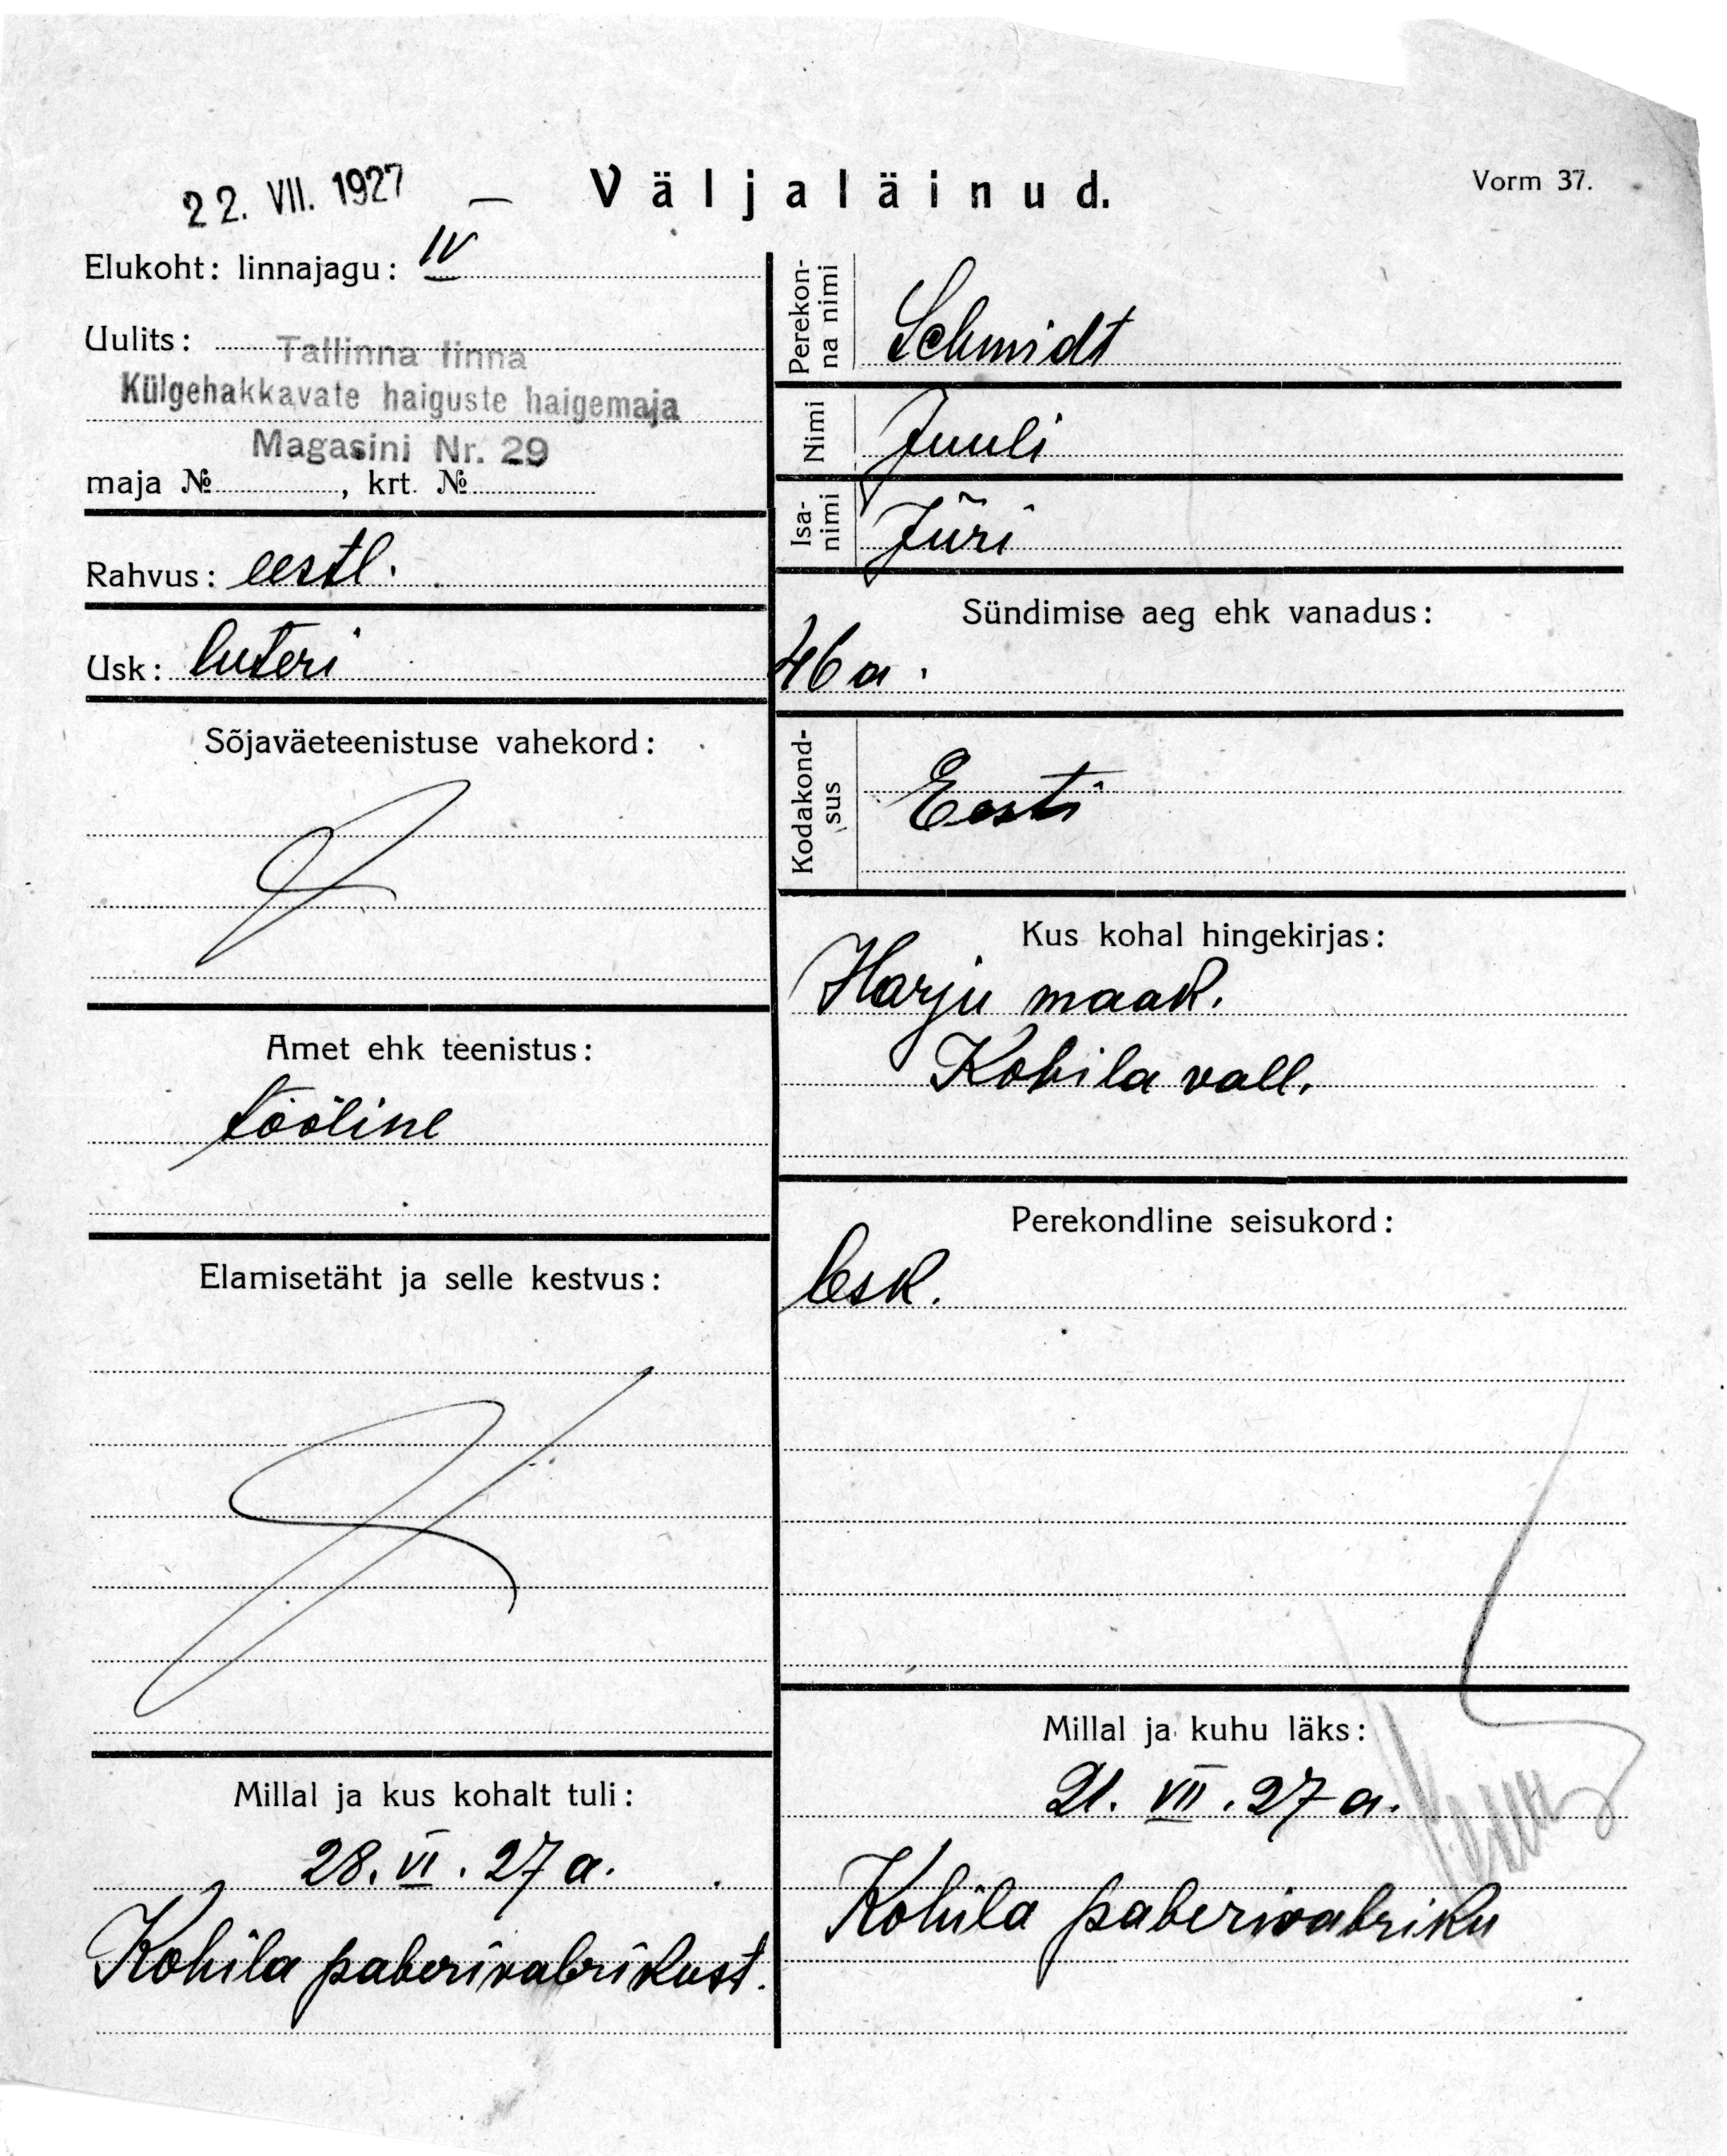 22. VII. 1927
Väljaläinud.
Vorm 37.
Elukoht: linnajagu: IV
Uulits:
Tallinna linna
Külgehakkavate haiguste haigemaja
Magasini Nr. 29
maja № , krt. №
Rahvus: eestl.
Usk: luteri
Sõjaväeteenistuse vahekord:
Amet ehk teenistus:
tööline
Elamisetäht ja selle kestvus:
Millal ja kus kohalt tuli:
28. VI. 27 a.
Kohila paberivabrikust.
Perekon-
na nimi
Schmidt
Nimi
Juuli
Isa-
nimi
Jüri
Sündimise aeg ehk vanadus:
46 a.
Kodakond-
sus
Eesti
Kus kohal hingekirjas:
Harju maak.
Kohila vall.
Perekondline seisukord:
lesk.
Millal ja kuhu läks:
21. VII. 27 a.
Kohila paberivabriku